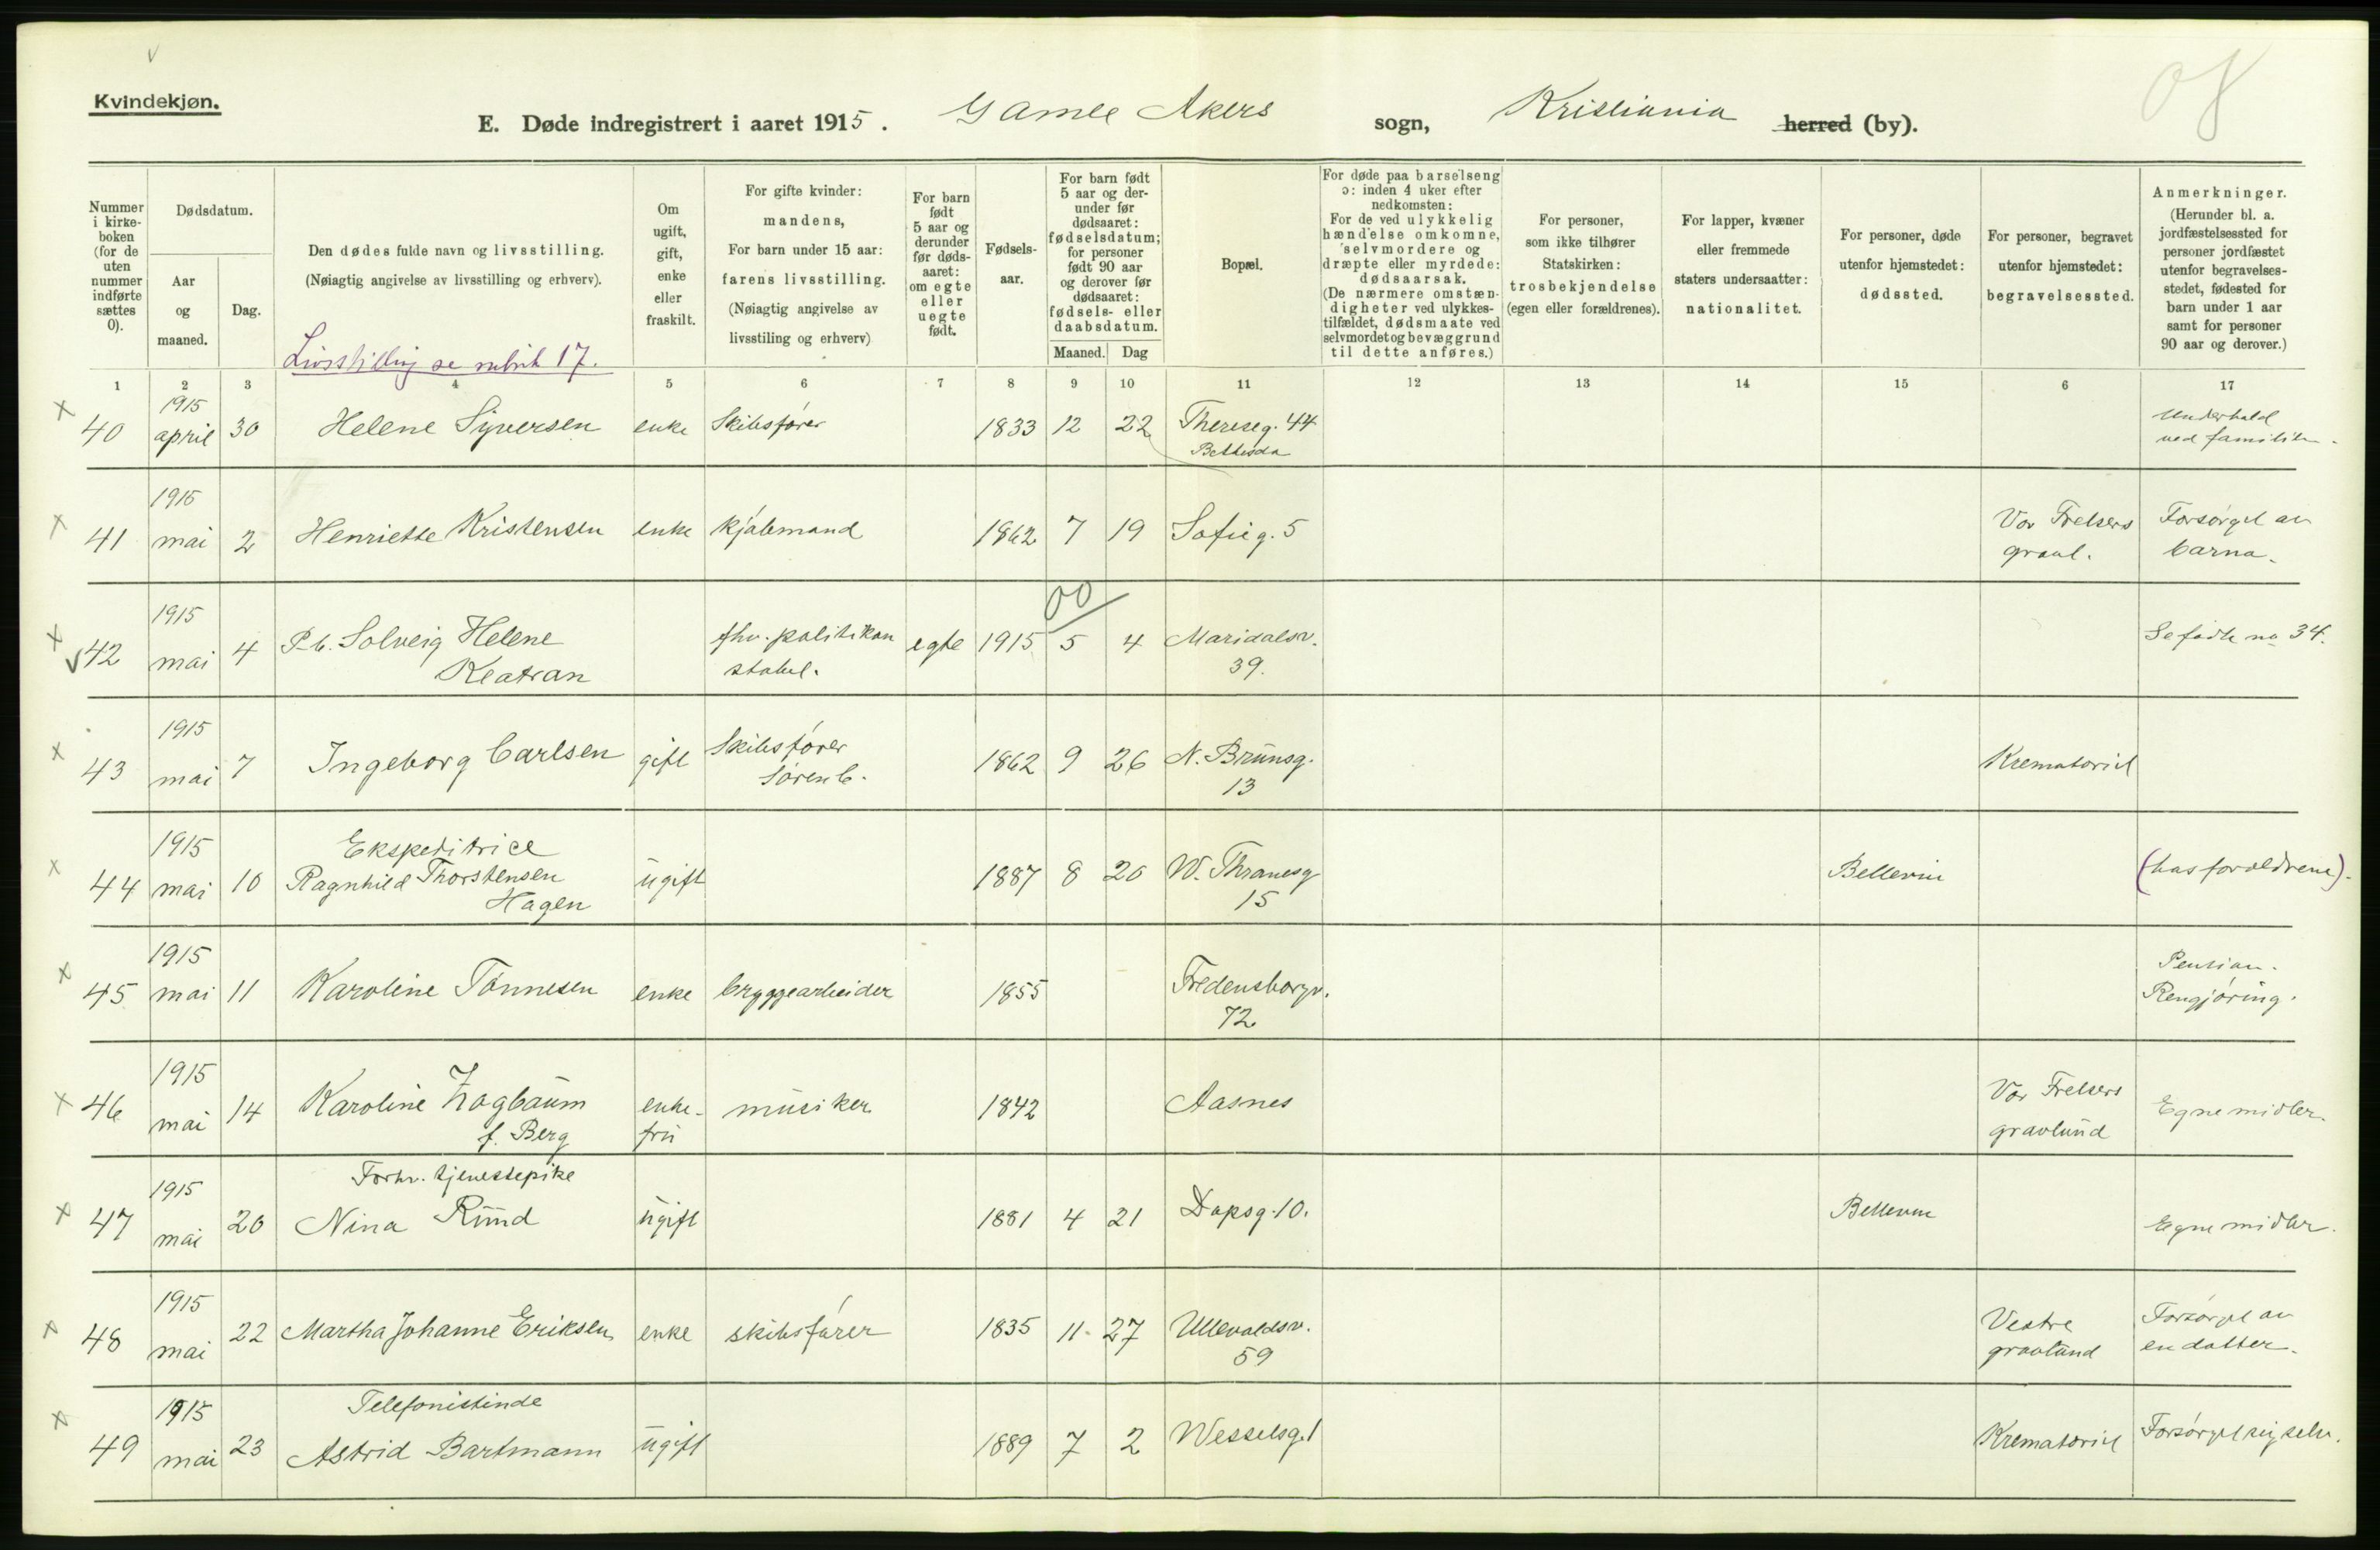 Kvindekjøn.
E. Døde indregistrert i aaret 1915. Gamle Akers sogn, Kristiania herred (by).
08
Nummer i kirkeboken (for de uten nummer indførte sættes 0).
Dødsdatum.
Aar og maaned.
Dag.
Den dødes fulde navn og livsstilling.
(Nøiagtig angivelse av livsstilling og erhverv).
Livsstilling se rubrik 17.
Om ugift, gift, enke eller fraskilt.
For gifte kvinder: mandens,
For barn under 15 aar: farens livsstilling.
(Nøiagtig angivelse av livsstiling og erhverv)
For barn født 5 aar og derunder før dødsaaret: om egte eller uegte født.
Fødselsaar.
For barn født 5 aar og derunder før dødsaaret: fødselsdatum; for personer født 90 aar og derover før dødsaaret: fødsels- eller daabsdatum.
Maaned. Dag
Bopæl.
For døde paa barselseng ɔ: inden 4 uker efter nedkomsten: For de ved ulykkelig hændelse omkomne, selvmordere og dræpte eller myrdede: dødsaarsak. (De nærmere omstændigheter ved ulykkestilfældet, dødsmaate ved selvmordet og bevæggrund til dette anføres.)
For personer, som ikke tilhører Statskirken: trosbekjendelse (egen eller forældrenes).
For lapper, kvæner eller fremmede staters undersaatter: nationalitet.
For personer, døde utenfor hjemstedet: dødssted.
For personer, begravet utenfor hjemstedet: begravelsessted.
Anmerkninger. (Herunder bl. a. jordfæstelsessted for personer jordfæstet utenfor begravelsesstedet, fødested for barn under 1 aar samt for personer 90 aar og derover.)
1 2 3 4 5 6 7 8 9 10 11 12 13 14 15 6 17
x 40 1915 april 30 Helene Syversen enke Skibsfører 1833 12 22 Thereseg. 44 Bethesda Underhold ved familien.
x 41 1915 mai 2 Henriette Kristensen enke kjøbmand 1862 7 19 Sofieg. 5 Vor Frelsers gravl. Forsørget av barna.
x v 42 1915 mai 4 P.b. Solveig Helene Keatran fhv. politikonstabel. egte 1915 5 4 00 Maridalsv. 39. Se fødte no 34.
x 43 1915 mai 7 Ingeborg Carlsen gift Skibsfører Søren C. 1862 9 26 N. Brunsg. 13 Krematoriet
x 44 1915 mai 10 Ekspeditrice Ragnhild Thorstensen Hagen ugift 1887 8 20 W. Thranesg 15 Bellevue (hos forældrene).
x 45 1915 mai 11 Karoline Tønnesen enke bryggearbeider 1855 Fredensborgv. 72 Pension. Rengjøring.
x 46 1915 mai 14 Karoline Zogbaum f. Berg enkefru musiker 1842 Aasnes Vor Frelsers gravlund Egne midler.
x 47 1915 mai 20 Forhv. tjenestepike Nina Rund ugift 1881 4 21 Dopsg. 10. Bellevue Egne midler.
x 48 1915 mai 22 Martha Johanne Eriksen enke skibsfører 1835 11 27 Ullevoldsv. 59 Vestre gravlund Forsørget av en datter.
x 49 1915 mai 23 Telefonistinde Astrid Bartmann ugift 1889 7 2 Wesselsg. 1 Krematoriet Forsørget sig selv.